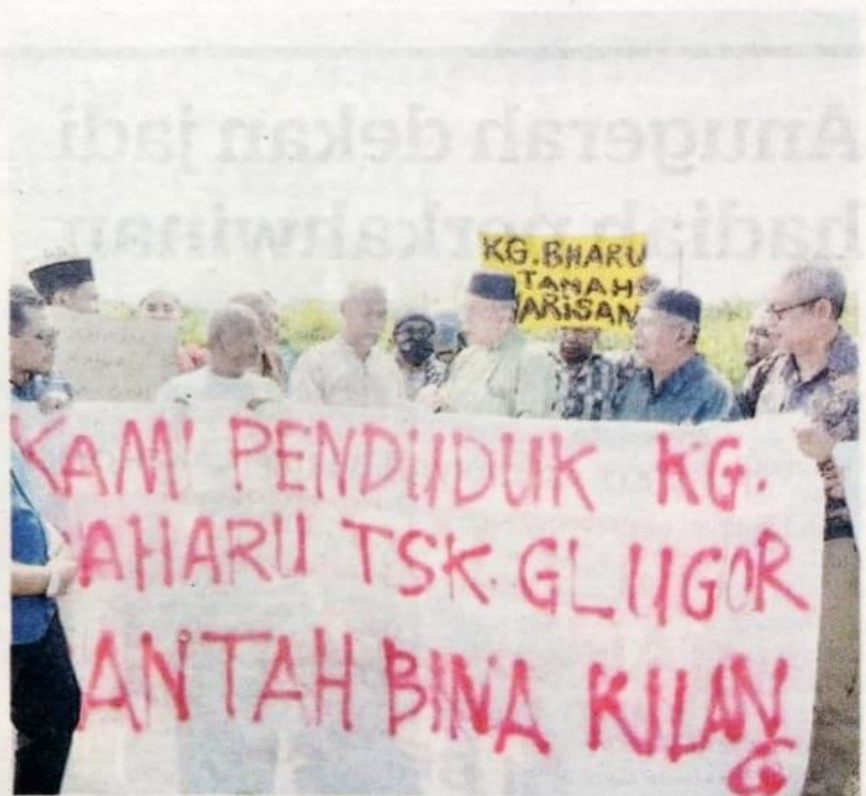 KG. BHARU
TANAH
ARISAN
KAMI PENDUDUK KG.
AHARU TSK. GLUGOR
ANTAH BINA KILANG